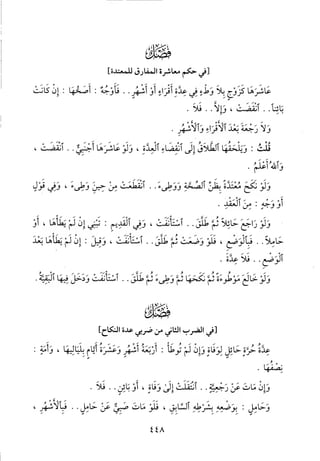 فصل
[في حكم معاشرة المفارق للمعتدة]
عاشرها كزوج بلا وطء في عدة أقراء أو أشهر .. فأوجه : أصحها : إن كانت
بائناً .. انقضت ، وإلا .. فلا .
ولا رجعة بعد الأقراء والأشهر .
قلت : ويلحقها الطلاق إلى انقضاء العدة ، ولو عاشرها أجنبي .. انقضت ،
والله أعلم .
ولو نكح معتدة بظن الصحة ووطىء .. انقطعت من حين وطىء ، وفي قول
أو وجه : من العقد .
ولو راجع حائلاً ثم طلق .. استأنفت ، وفي القديم : تبني إن لم يطأها ، أو
حاملاً .. فبالوضع ، فلو وضعت ثم طلق .. استأنفت ، وقيل : إن لم يطأها بعد
الوضع .. فلا عدة .
ولو خالع موطوءة ثم نكحها ثم وطىء ثم طلق .. استأنفت ودخل فيها البقية .
فصل
[في الضرب الثاني من ضربي عدة النكاح]
عدة حرة حائل لوفاة وإن لم توطأ : أربعة أشهر وعشرة أيام بلياليها ، وأمة :
نصفها .
وإن مات عن رجعية .. انتقلت إلى وفاة ، أو بائن .. فلا .
وحامل : بوضعه بشرطه السابق ، فلو مات صبي عن حامل .. فبالأشهر ،
٤٤٨